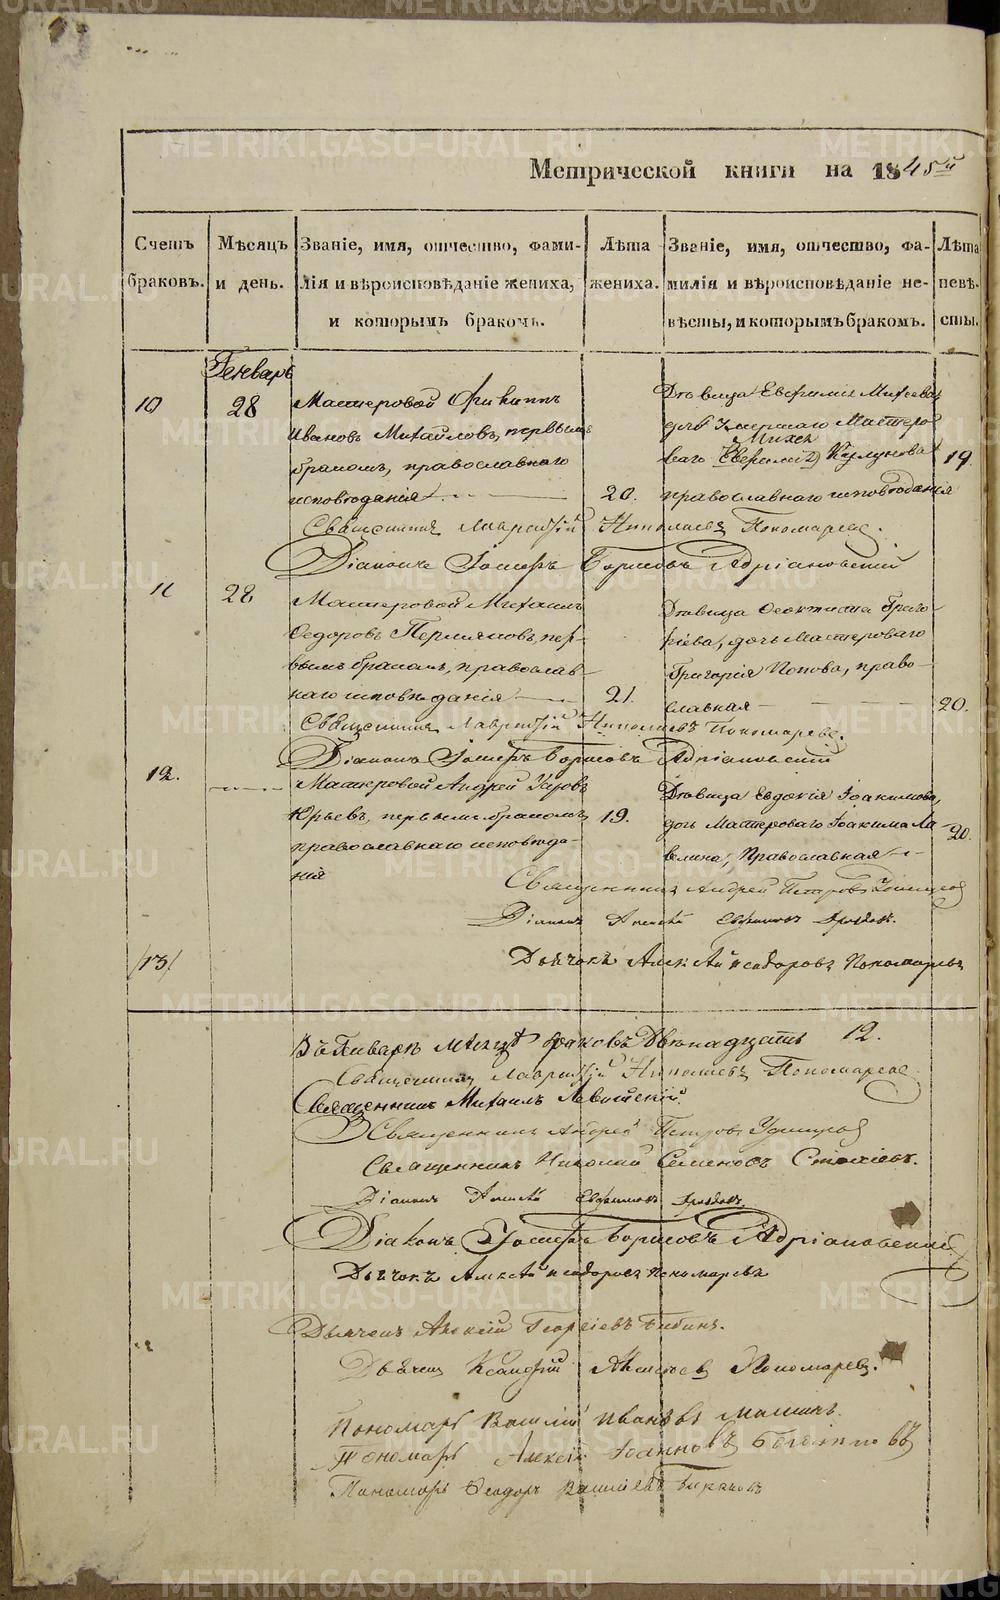 Метрической книги на 1845й
Счетъ браковъ.
Мѣсяцъ и день.
Званіе, имя, отчество, фами-
лія и вѣроисповѣданіе жениха,
и которымъ бракомъ.
Лѣта жениха.
Званіе, имя, отчество, фа-
милія и вѣроисповѣданіе не-
вѣсты, и которымъ бракомъ.
Лѣта невѣ-
сты.
Генварь
10
28
Мастеровой
Ивановъ Михайловъ, первымъ
бракомъ, православнаго
исповѣданія
20.
Дѣвица Евфимія Михеева
дочь умершаго Мастеро
Михея
ваго
православнаго исповѣданія
19
Священникъ Лаврентій Николаевъ Пономаревъ.
Діаконъ Іосифъ Борисовъ Адріановскій
11
28
Мастеровой Михаилъ
Ѳедоровъ Пермяковъ, пер-
вымъ бракомъ, православ-
наго исповѣданія
21.
Дѣвица Ѳеоктиста Григо-
рьева, дочь Мастероваго
Григорія Попова, право-
славная
20.
Священникъ Лаврентій Николаевъ Пономаревъ.
Діаконъ Іосифъ Борисовъ Адріановскій
12.
Мастеровой Андрей
Юрьевъ, первымъ бракомъ,
православнаго исповѣда-
нія
19.
Дѣвица Евдокія Іоакимова,
дочь Мастероваго Іоакима
Православная
20.
Священникъ Андрей Петровъ Удинцовъ
Діаконъ Алексѣй Евфимовъ
Дьячокъ Алексѣй Ѳеодоровъ Пономаревъ
/13/
Въ Январѣ мѣсяцѣ браковъ Двѣнадцать 12.
Священникъ Лаврентій Николаевъ Пономаревъ
Священникъ Михаилъ Левитскій
Священникъ Андрей Петровъ Удинцовъ
Священникъ Николай Семеновъ
Діаконъ Алексѣй Евфимовъ
Діаконъ Іосифъ Борисовъ Адріановскій
Дьячокъ Алексѣй Ѳеодоровъ Пономаревъ
Дьячекъ Алексѣй Георгіевъ Бибинъ.
Дьячекъ Ксенофонтъ Алексѣевъ Пономаревъ.
Пономарь Василій Ивановъ
Пономарь Алексѣй Іоанновъ
Пономарь Ѳеодоръ Васильевъ
METRIKI.GASO-URAL.RU